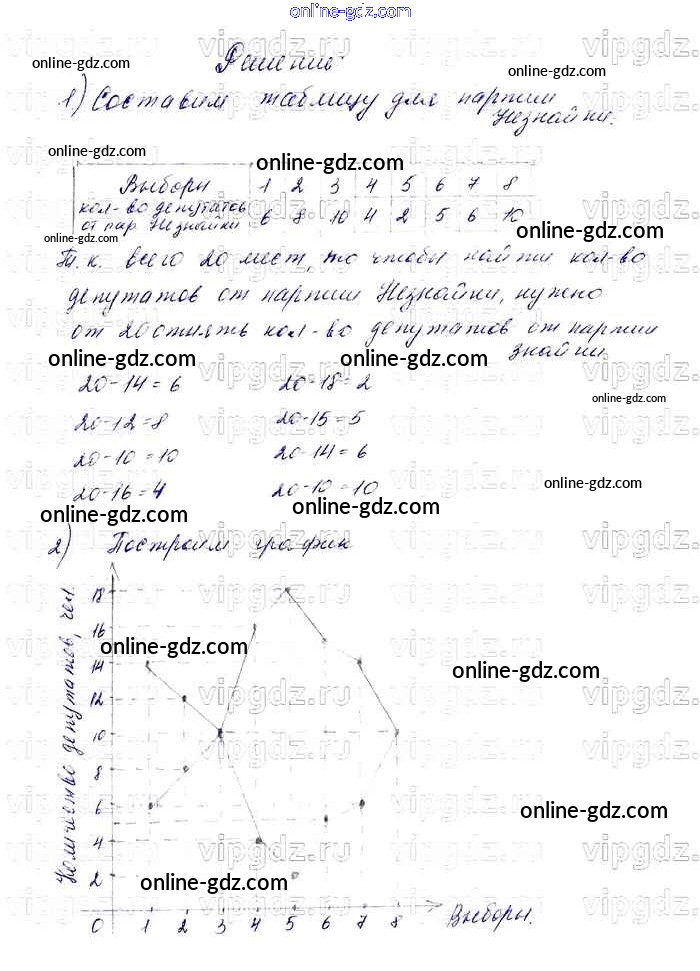 online-gdz.com
Решение:
1) Составим таблицу для партии
Незнайки.
Выборы 1 2 3 4 5 6 7 8
кол-во депутатов
от пар. Незнайки 6 8 10 4 2 5 6 10
Т.к. всего 20 мест, то чтобы найти кол-во
депутатов от партии Незнайки, нужно
от 20 отнять кол-во депутатов от партии
знайки.
20-14=6 20-18=2
20-12=8 20-15=5
20-10=10 20-14=6
20-16=4 20-10=10
2) Построим график
Количество депутатов, чел.
18
16
14
12
10
8
6
4
2
0 1 2 3 4 5 6 7 8 Выборы.
online-gdz.com
vipgdz.ru